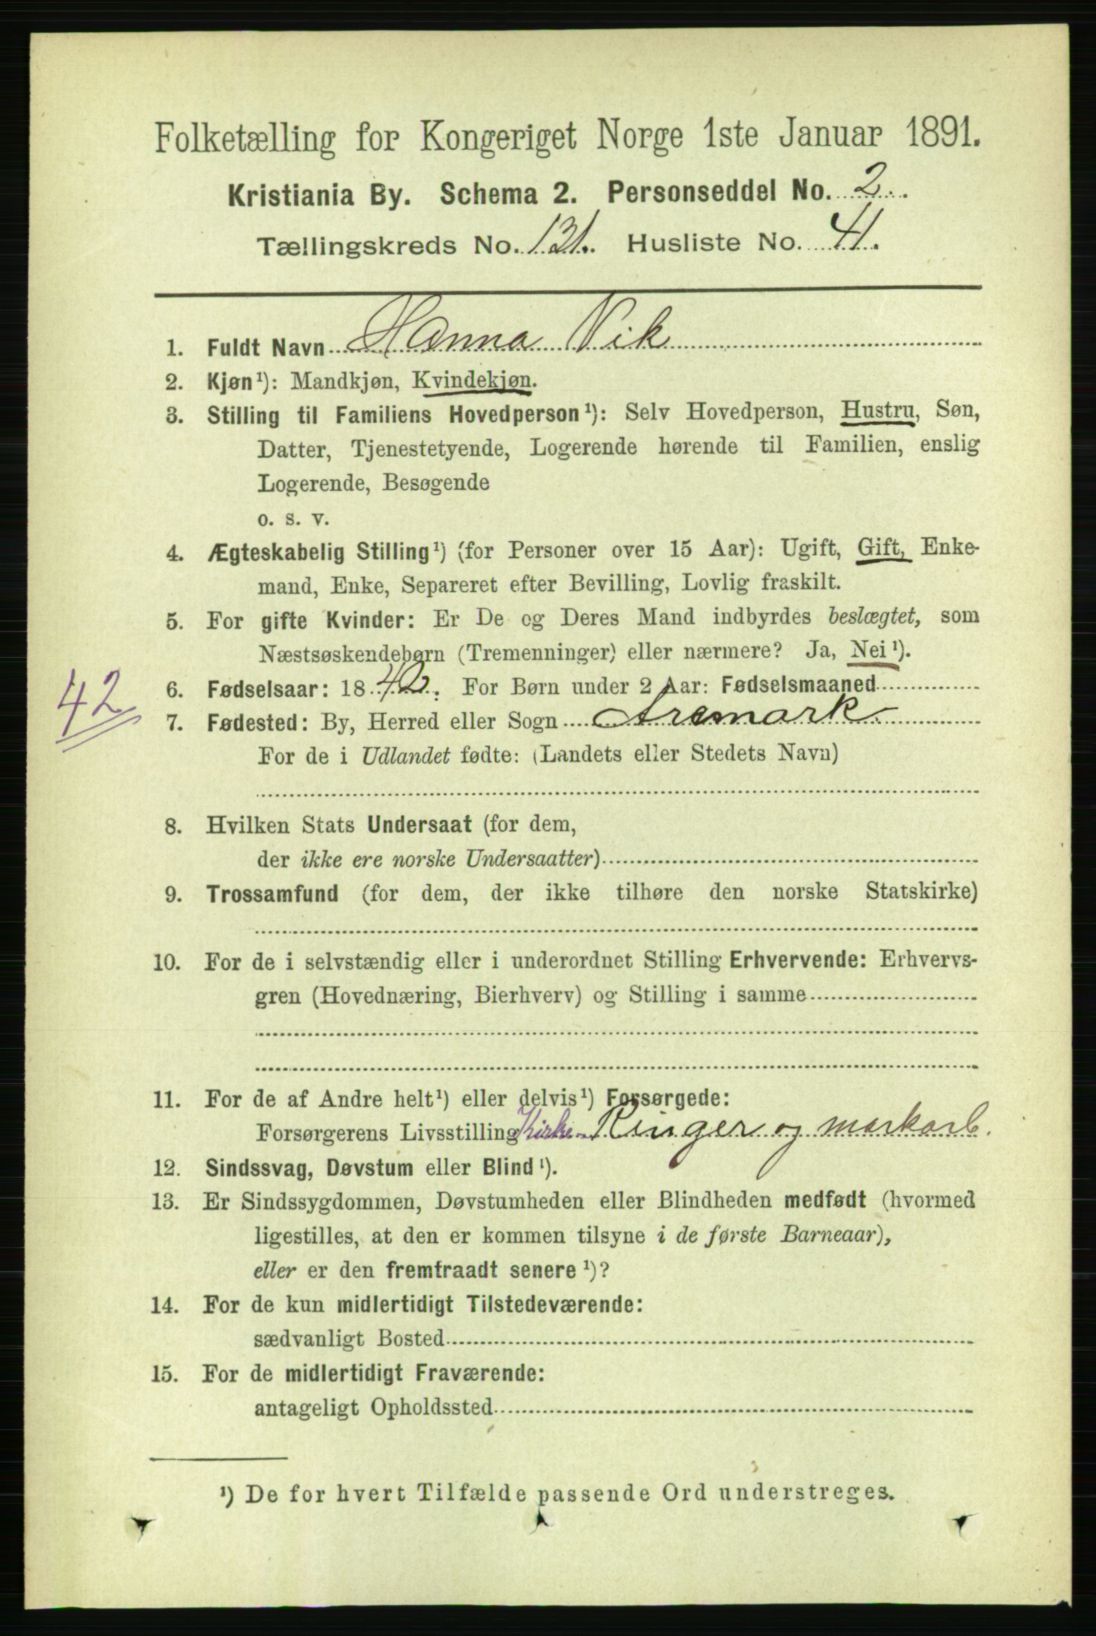 Folketælling for Kongeriget Norge 1ste Januar 1891.
Kristiania By. Schema 2. Personseddel No. 2.
Tællingskreds No. 131. Husliste No. 41.
1. Fuldt Navn Hanna Vik
2. Kjøn¹): Mandkjøn, Kvindekjøn.
3. Stilling til Familiens Hovedperson¹): Selv Hovedperson, Hustru, Søn,
Datter, Tjenestetyende, Logerende hørende til Familien, enslig
Logerende, Besøgende
o. s. v.
4. Ægteskabelig Stilling¹) (for Personer over 15 Aar): Ugift, Gift, Enke-
mand, Enke, Separeret efter Bevilling, Lovlig fraskilt.
5. For gifte Kvinder: Er De og Deres Mand indbyrdes beslægtet, som
Næstsøskendebørn (Tremenninger) eller nærmere? Ja, Nei¹).
6. Fødselsaar: 1842. For Børn under 2 Aar: Fødselsmaaned
42
7. Fødested: By, Herred eller Sogn Aremark.
For de i Udlandet fødte: (Landets eller Stedets Navn)
8. Hvilken Stats Undersaat (for dem,
der ikke ere norske Undersaatter)
9. Trossamfund (for dem, der ikke tilhøre den norske Statskirke)
10. For de i selvstændig eller i underordnet Stilling Erhvervende: Erhvervs-
gren (Hovednæring, Bierhverv) og Stilling i samme
11. For de af Andre helt¹) eller delvis¹) Forsørgede:
Forsørgerens Livsstilling Kirke Ringer og markarb.
12. Sindssvag, Døvstum eller Blind¹).
13. Er Sindssygdommen, Døvstumheden eller Blindheden medfødt (hvormed
ligestilles, at den er kommen tilsyne i de første Barneaar),
eller er den fremtraadt senere¹)?
14. For de kun midlertidigt Tilstedeværende:
sædvanligt Bosted
15. For de midlertidigt Fraværende:
antageligt Opholdssted
¹) De for hvert Tilfælde passende Ord understreges.